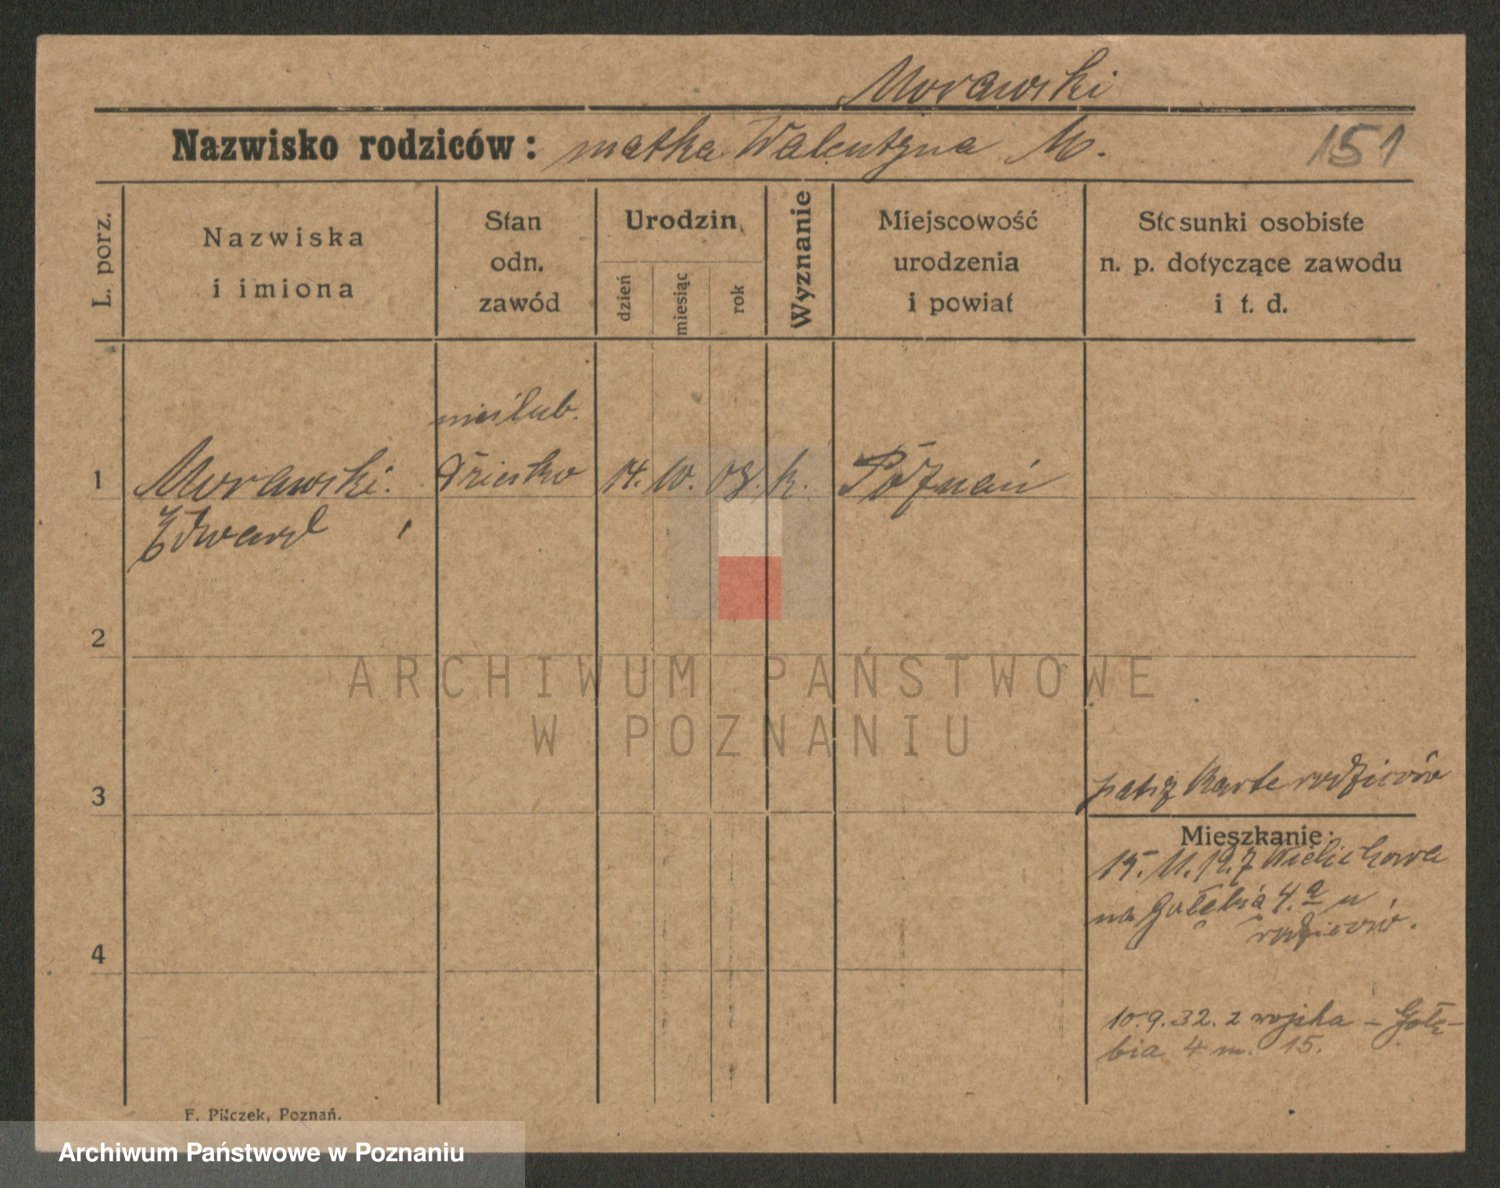 Morawski
Nazwisko rodziców: matka Walentyna M. 151
L. porz.
Nazwiska
i imiona
Stan
odn.
zawód
Urodzin
dzień
miesiąc
rok
Wyznanie
Miejscowość
urodzenia
i powiat
Stosunki osobiste
n. p. dotyczące zawodu
i t. d.
nieślub.
1 Morawski dziecko 14. 10. 08. k. Poznań
Edward
2
ARCHIWUM PAŃSTWOWE
W POZNANIU
3
patrz karte rodziców
Mieszkanie:
15. 11. 19.
na Gołębią 4. a u
rodziców.
4
10.9.32. z wojska - Gołę-
bia 4 m. 15.
F. Pilczek, Poznań.
Archiwum Państwowe w Poznaniu